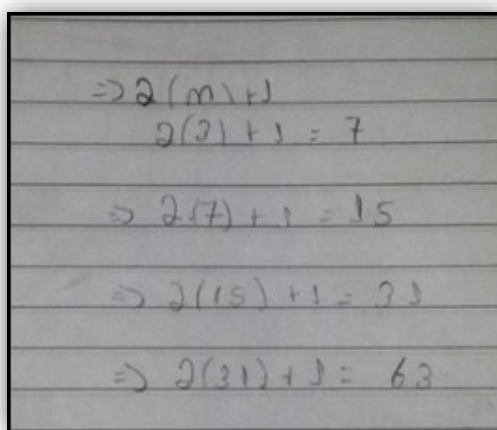 => 2(n)+1
2(3)+1 = 7
=> 2(7)+1 = 15
=> 2(15)+1 = 31
=> 2(31)+1 = 63